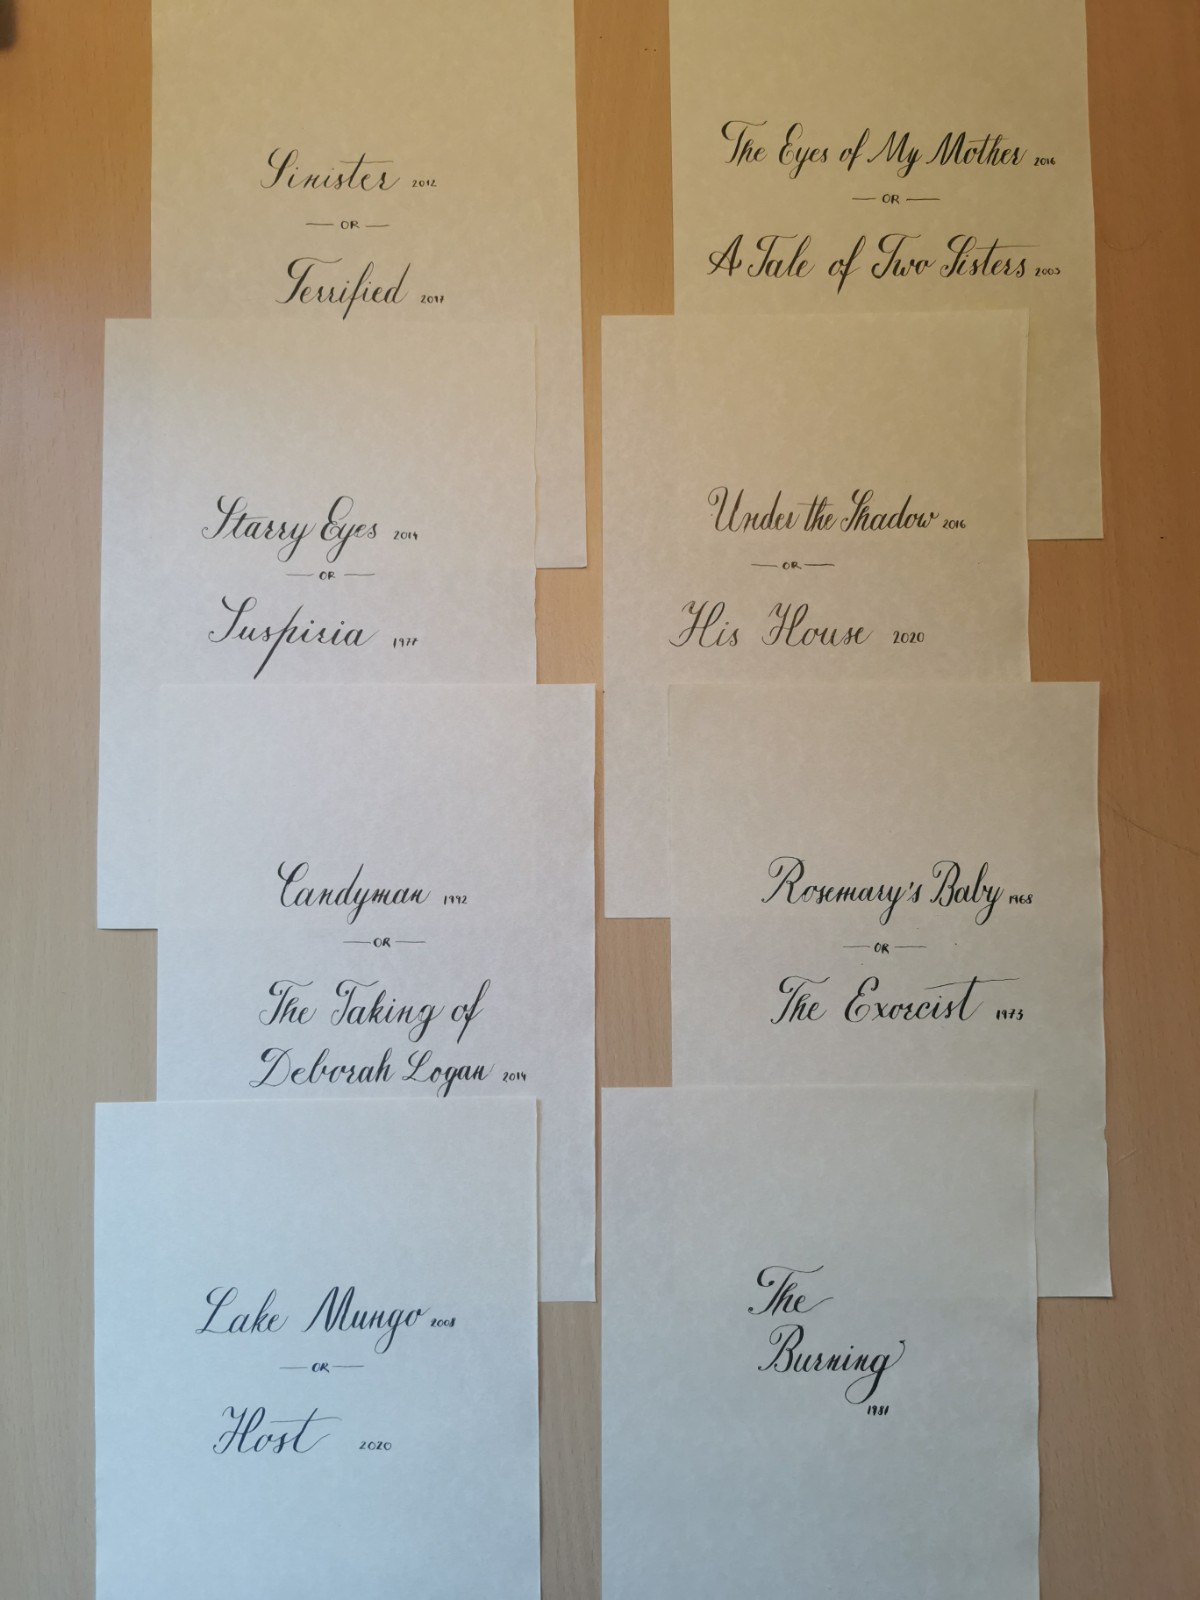 Sinister 2012
OR
Terrified 2017
Starry Eyes 2014
OR
Suspiria 1977
Candyman 1992
OR
The Taking of
Deborah Logan 2014
Lake Mungo 2008
OR
Host 2020
The Eyes of My Mother 2016
OR
A Tale of Two Sisters 2003
Under the Shadow 2016
OR
His House 2020
Rosemary's Baby 1968
OR
The Exorcist 1973
The
Burning
1981